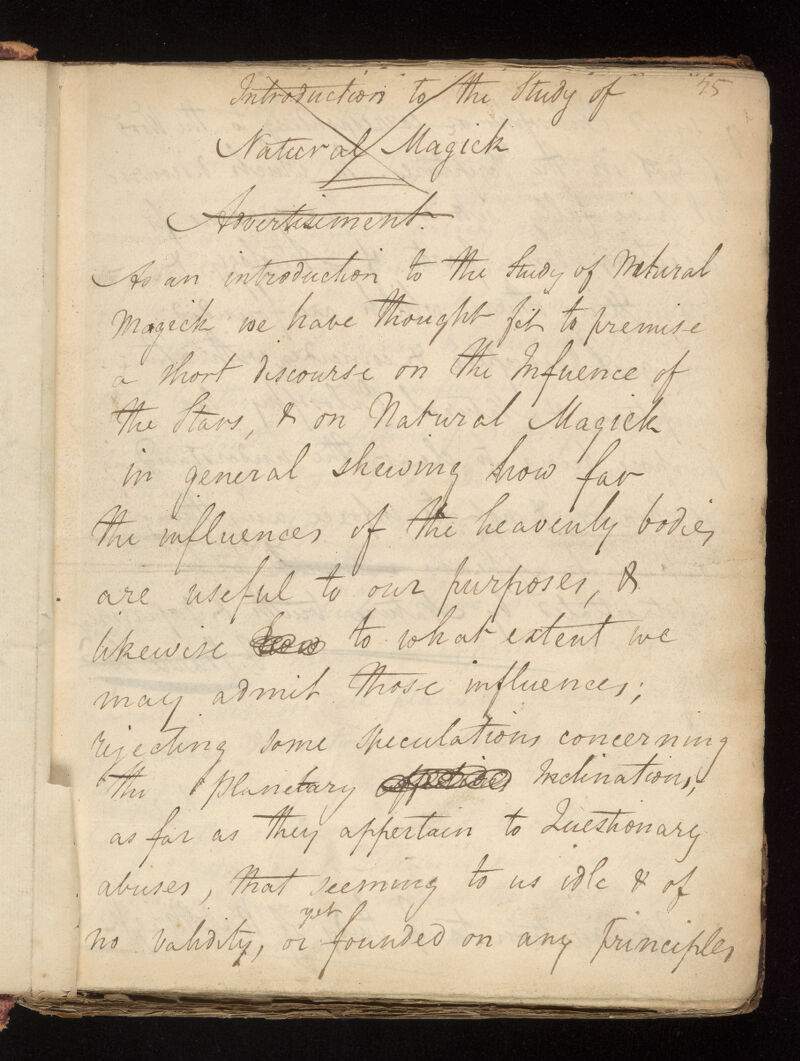 75
Introduction to the Study of
Natural Magick
Advertisement.
As an introduction to the Study of Natural
Magick we have thought fit to premise
a short discourse on the Influence of
the Stars, & on Natural Magick
in general shewing how far
the influences of the heavenly bodies
are useful to our purposes, &
likewise how to what extent we
may admit those influences;
rejecting some speculations concerning
the planetary Inclinations,
as far as they appertain to Questionary
abuses, that seeming to us idle & of
yet
no validity, or founded on any Principles